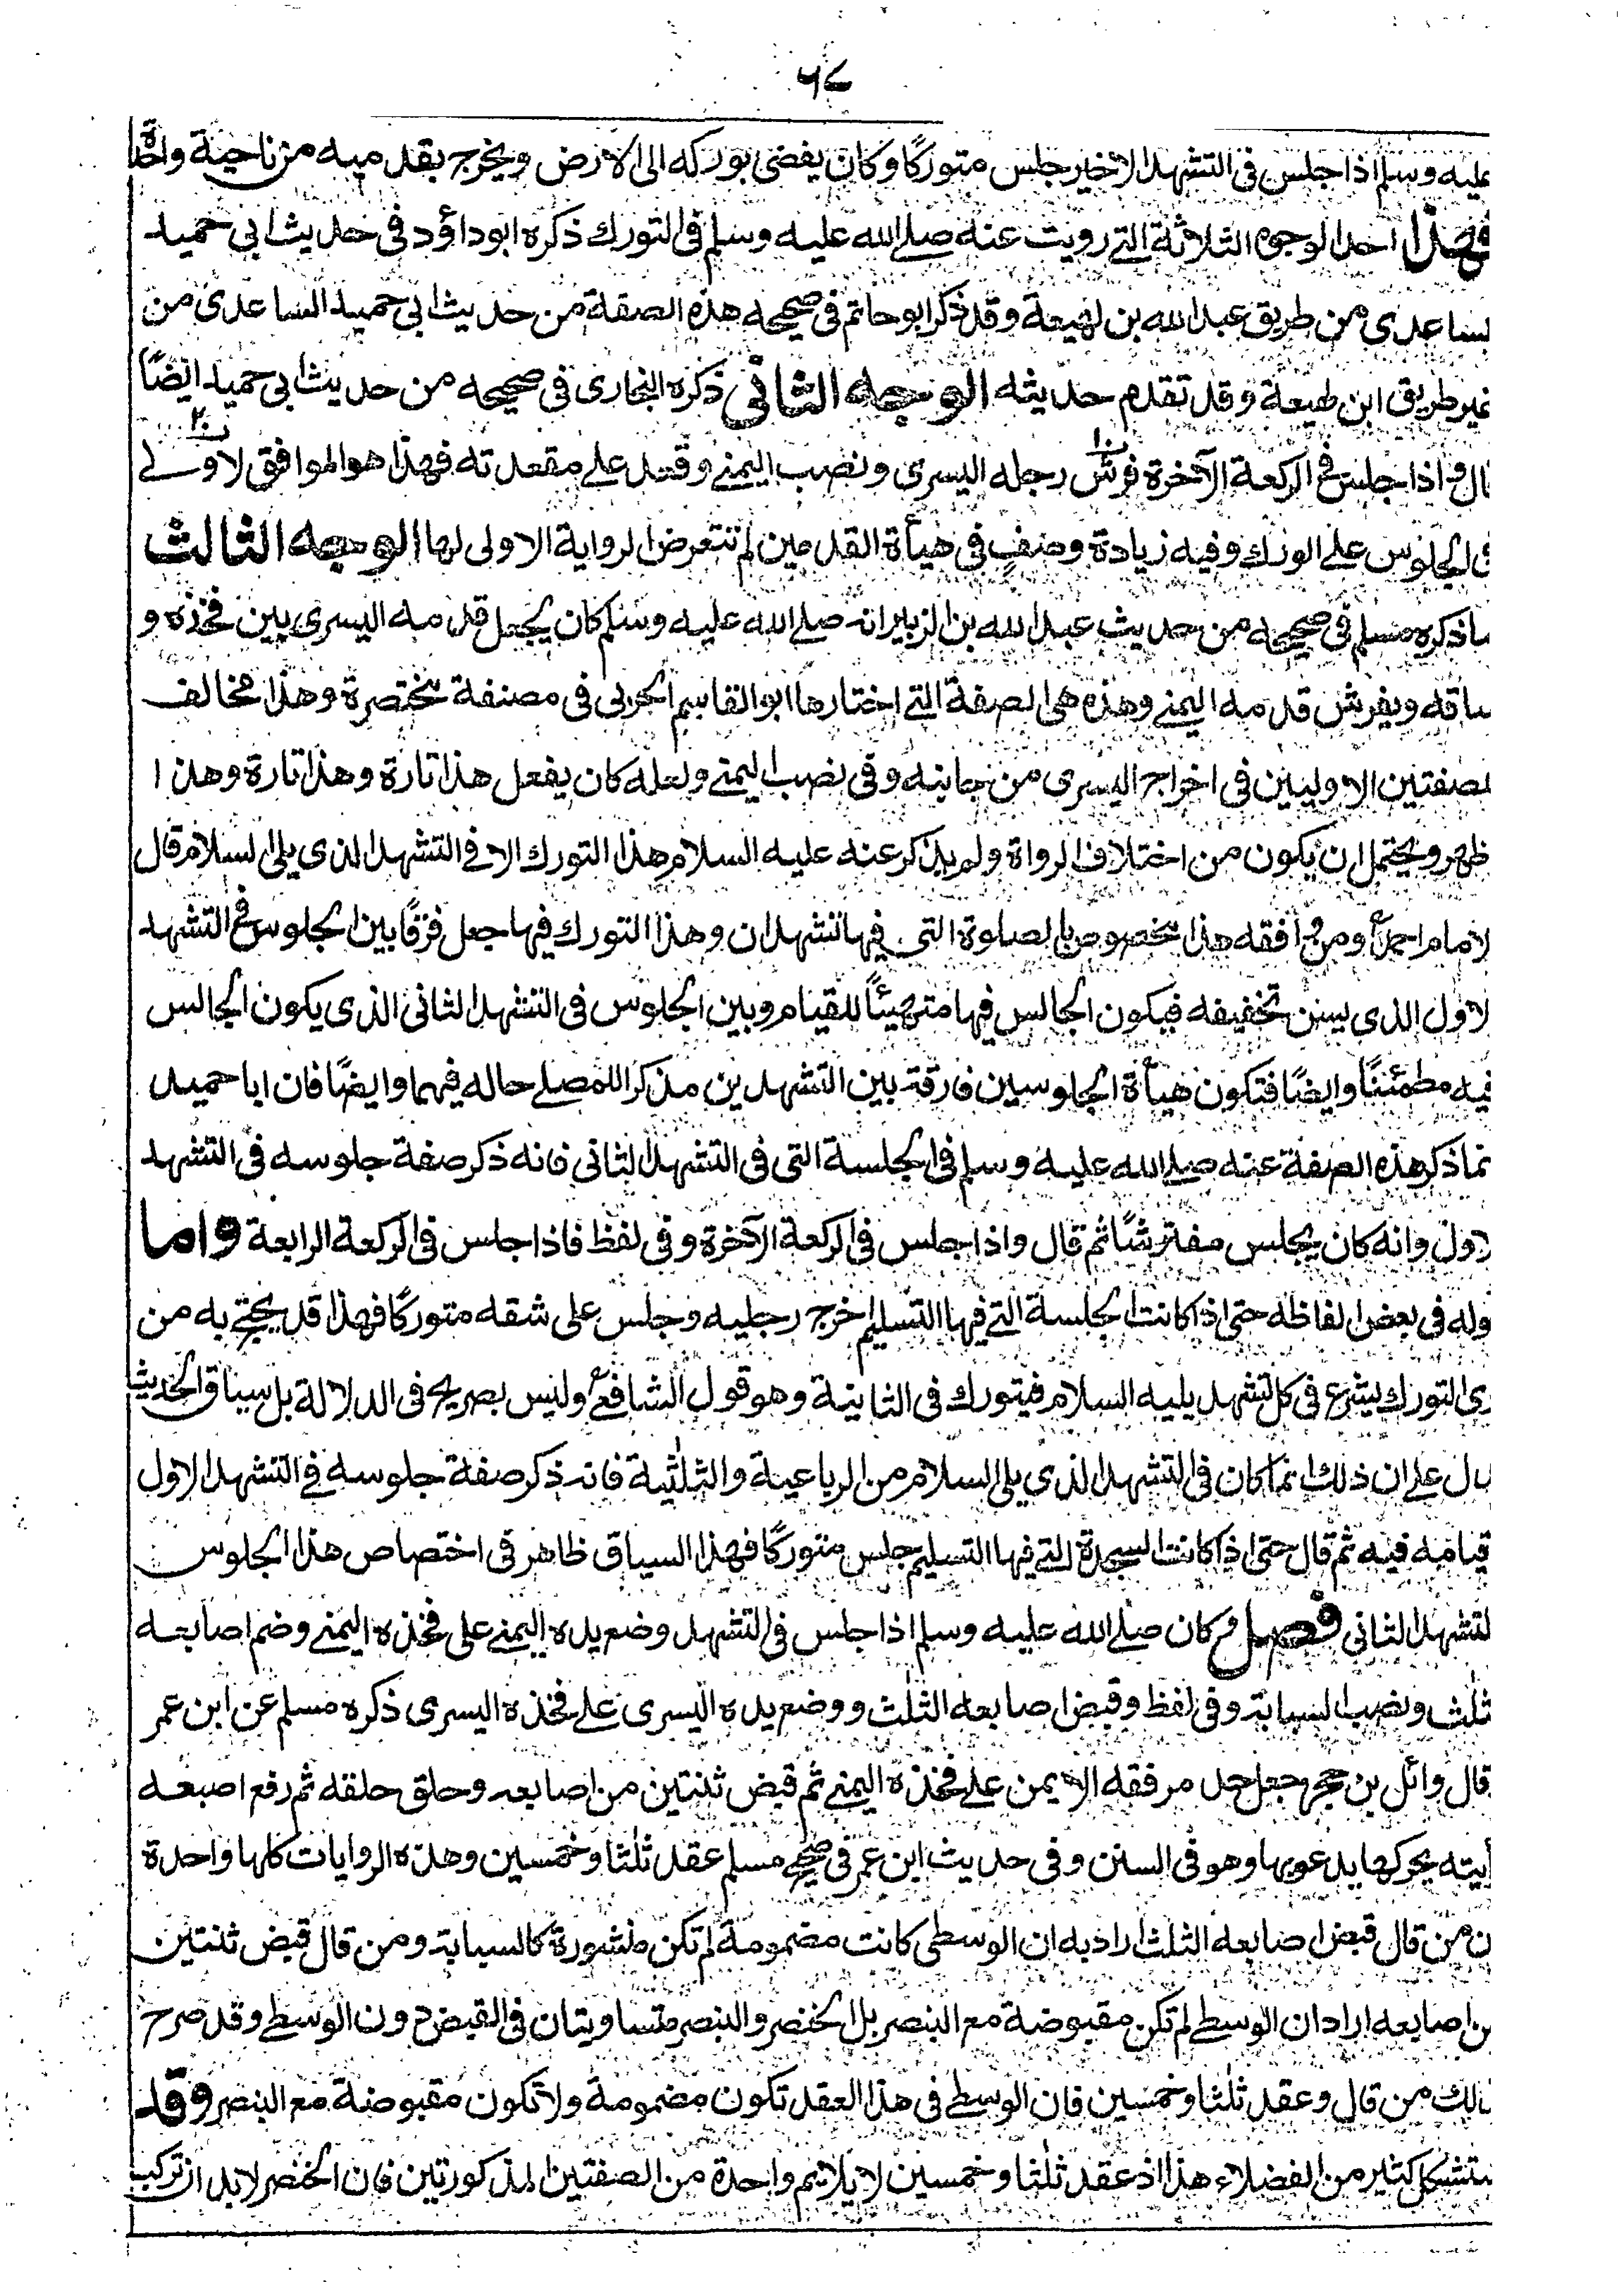 ٦٧
عليه وسلم اذا جلس فى التشهد الاخير جلس متوركًا وكان يفضى بوركه الى الارض ويخرج بقدميه من ناحية واحدة
فهذا احد الوجوه الثلاثة التے رويت عنه صلے الله عليه وسلم فى التورك ذكره ابوداؤد فى حديث ابى حميد
لساعدى من طريق عبدالله بن لهيعة وقد ذكر ابو حاتم فى صحيحه هذه الصفة من حديث ابى حميد الساعدى من
غير طريق ابن لهيعة وقد تقدم حديثه الوجه الثانى ذكره البخارى فى صحيحه من حديث ابى حميد ايضًا
قال واذا جلس فى الركعة الآخرة فرش رجله اليسرى ونصب اليمنے وقعد علے مقعدته فهذا هو الموافق لاولے
فى الجلوس علے الورك وفيه زيادة وصفٍ فى هيأة القدمين لم تتعرض الرواية الاولى لها الوجه الثالث
ماذكره مسلم فى صحيحه من حديث عبدالله بن الزبير انه صلے الله عليه وسلم كان يجعل قدمه اليسرى بين فخذه و
ساقه ويفرش قدمه اليمنے وهذه هى الصفة التے اختارها ابوالقاسم الخرقى فى مصنفة مختصرة وهذا مخالف
لصفتين الاوليين فى اخراج اليسرى من جانبه وفى نصب اليمنے ولعله كان يفعل هذا تارة وهذا تارة وهذا ا
ظهر ويحتمل ان يكون من اختلاف الرواة ولم يذكر عنه عليه السلام هذا التورك الا فى التشهد الذى يلى السلام قال
لامام احمد ومن وافقه هذا مخصوص بالصلوة التى فيها تشهدان وهذا التورك فيها جعل فرقًا بين الجلوس فى التشهد
لاول الذى يسن تخفيفه فيكون الجالس فيها متهيئًا للقيام وبين الجلوس فى التشهد الثانى الذى يكون الجالس
فيه مطمئنًا وايضًا فتكون هيأة الجلوسين فارقة بين التشهدين مذكرا للمصلے حاله فيهما وايضًا فان ابا حميد
نما ذكر هذه الصفة عنه صلے الله عليه وسلم فى الجلسة التى فى التشهد الثانى فانه ذكر صفة جلوسه فى التشهد
لاول وانه كان يجلس مفترشًا ثم قال واذا جلس فى الركعة الآخرة وفى لفظ فاذا جلس فى الركعة الرابعة واما
وله فى بعض الفاظه حتى اذا كانت الجلسة التے فيها التسليم اخرج رجليه وجلس على شقه متوركًا فهذا قد يحتج به من
رى التورك يشرع فى كل تشهد يليه السلام فيتورك فى الثانية وهو قول الشافعے وليس بصريح فى الدلالة بل سياق الحديث
دل علے ان ذلك انما كان فى التشهد الذى يلى السلام من الرباعية والثلٰثية فانه ذكر صفة جلوسه فى التشهد الاول
قيامه فيه ثم قال حتى اذا كانت السجدة التے فيها التسليم جلس متوركًا فهذا السياق ظاهر فى اختصاص هذا الجلوس
لتشهد الثانى فصل وكان صلے الله عليه وسلم اذا جلس فى التشهد وضع يده اليمنے على فخذه اليمنے وضم اصابعه
ثلٰث ونصب السبابة وفى لفظ وقبض اصابعه الثلٰث ووضع يده اليسرى علے فخذه اليسرى ذكره مسلم عن ابن عمر
قال وائل بن حجر جعل حد مرفقه الايمن علے فخذه اليمنے ثم قبض ثنتين من اصابعه وحلق حلقه ثم رفع اصبعه
أيته يحركها يدعو بها وهو فى السنن وفى حديث ابن عمر فى صحيح مسلم عقد ثلٰثا وخمسين وهذه الروايات كلها واحدة
ن من قال قبض اصابعه الثلٰث اراد به ان الوسطى كانت مضمومة لم تكن منشورة كالسبابة ومن قال قبض ثنتين
من اصابعه اراد ان الوسطے لم تكن مقبوضة مع البنصر بل الخنصر والبنصر متساويتان فى القبض دون الوسطے وقد صرح
ذالك من قال وعقد ثلٰثا وخمسين فان الوسطے فى هذا العقد تكون مضمومة ولا تكون مقبوضة مع البنصر وقد
ستشكل كثير من الفضلاء هذا اذ عقد ثلٰثا وخمسين لا يلائم واحدة من الصفتين المذكورتين فان الخنصر لا بد ان تركب